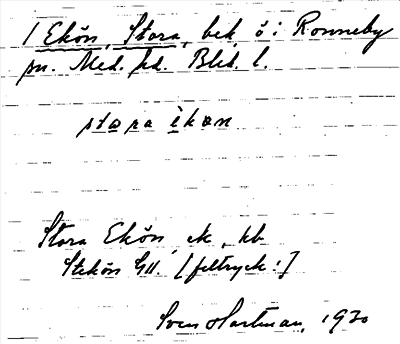 1 Ekön, Stora, bek. ö i Ronneby
sn. Med. hd. Blek. l.
stora èkøn
Stora Ekön, ek, kb
Stekön GH. [feltryck!]
Sven Hartman, 1930